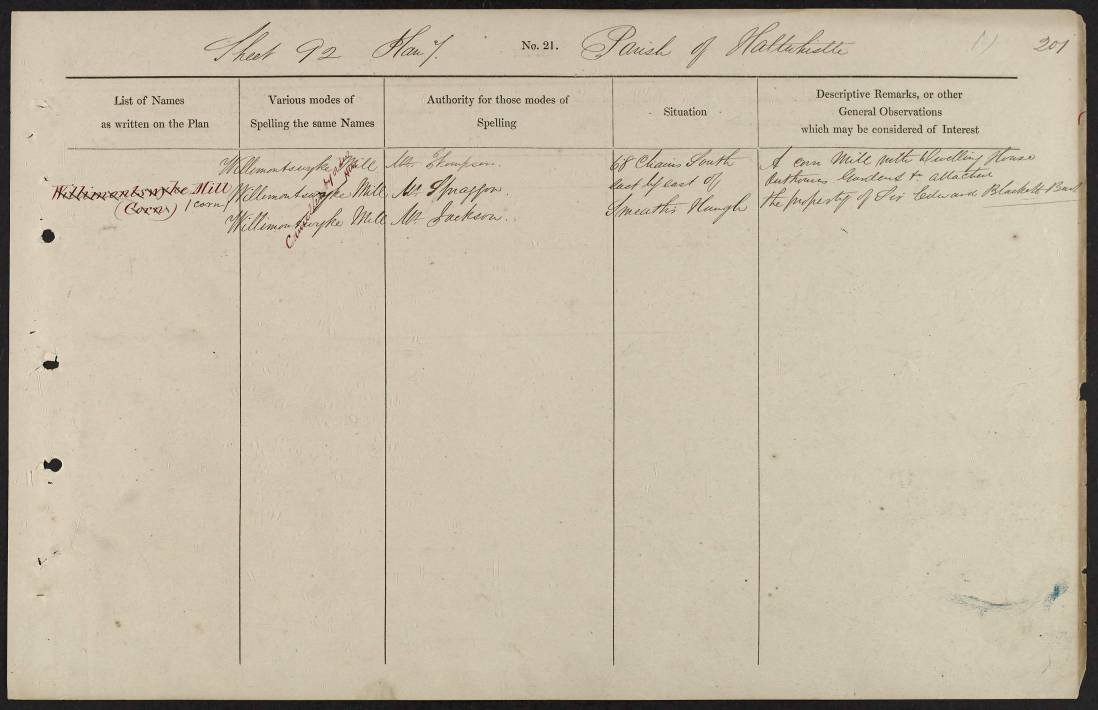 Sheet 92 Plan 7. No. 21. Parish of Haltwhistle 201
List of Names
as written on the Plan
Various modes of
Spelling the same Names
Authority for those modes of
Spelling
Situation
Descriptive Remarks, or other
General Observations
which may be considered of Interest
Willimontswyke Mill
(Corn) (corn)
Willimontswyke Mill
Willimontswyke Mill
Willimontswyke Mill
Mr. Thompson.
Mr. Spraggon.
Mr. Jackson.
68 Chains South
east by east of
Smeaths Haugh
A corn Mill with Dwelling House
Outhouses Gardens &. attatched
the property of Sir Edward Blackett Bart